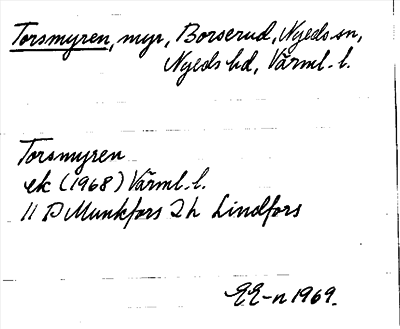 Torsmyren, myr, Borserud, Nyeds sn,
Nyeds hd, Värml. l.
Torsmyren
ek (1968) Värml. l.
11 D Munkfors 2 h Lindfors
EE-n 1969.